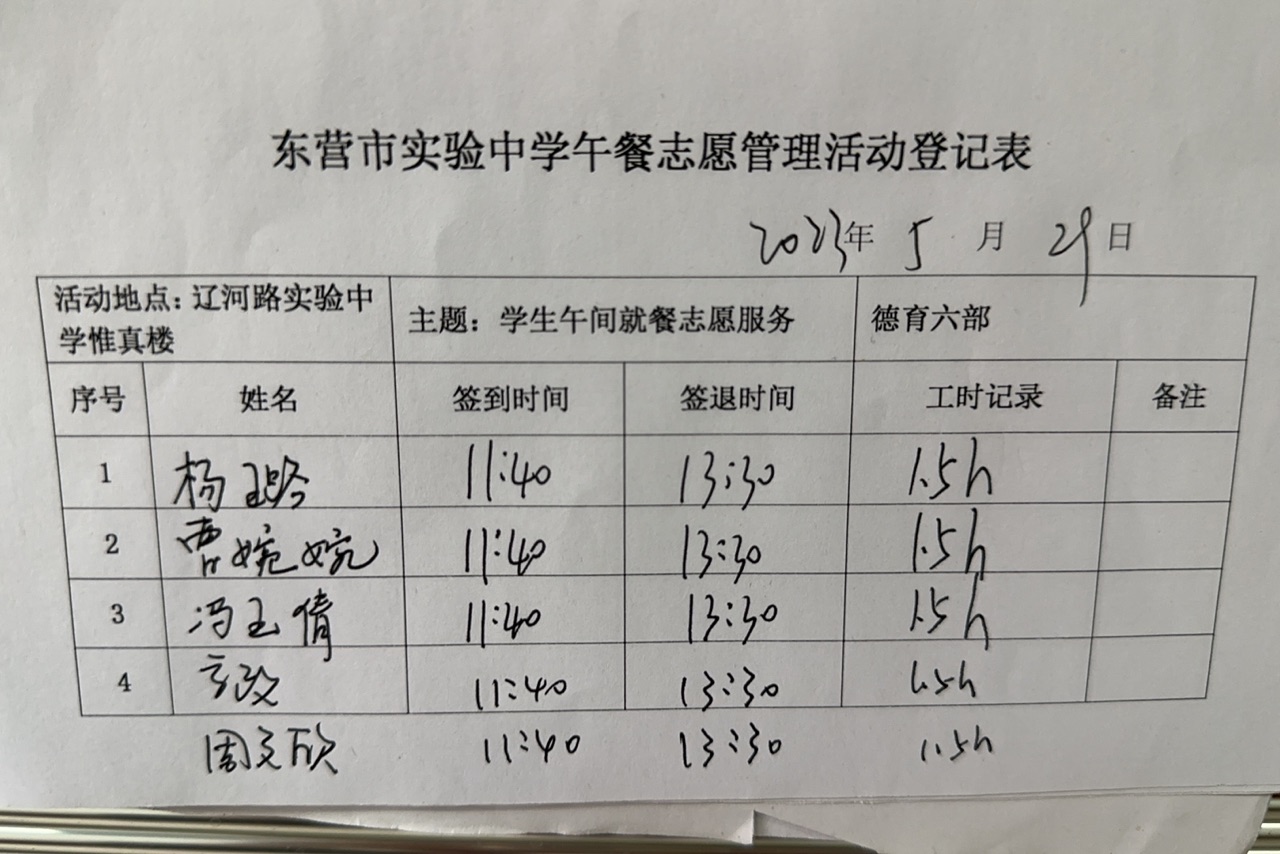 东营市实验中学午餐志愿管理活动登记表
2023年 5 月 29 日
活动地点：辽河路实验中学惟真楼 主题：学生午间就餐志愿服务 德育六部
序号 姓名 签到时间 签退时间 工时记录 备注
1 杨璐 11:40 13:30 1.5h
2 曹婉婉 11:40 13:30 1.5h
3 冯玉倩 11:40 13:30 1.5h
4 11:40 13:30 1.5h
周文欣 11:40 13:30 1.5h